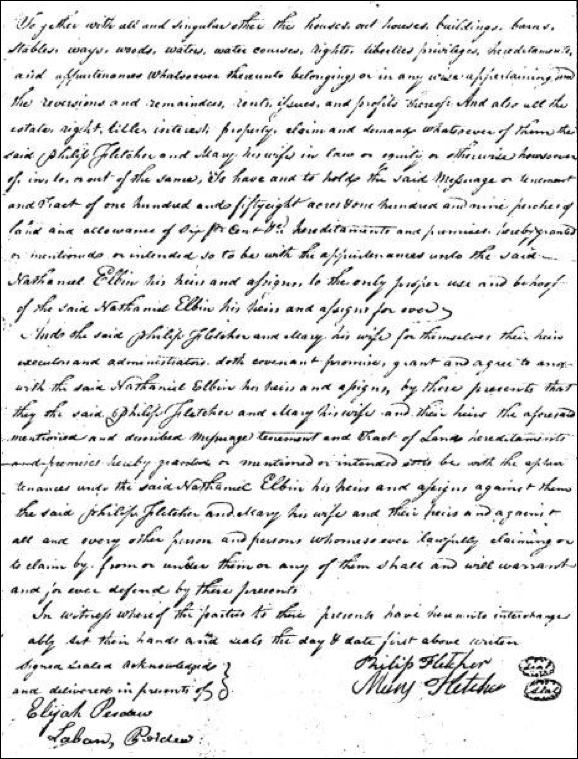 Together with all and singular other the houses, out houses, buildings, barns,
stables, ways, woods, waters, water courses, rights, liberties privileges, hereditaments,
and appurtenances whatsoever thereunto belonging or in any wise appertaining and
the reversions and remainders, rents, issues, and profits thereof And also all the
estate, right, title, interest, property, claim and demand whatsoever of them the
said Philip Fletcher and Mary his wife in law or equity or otherwise howsoever
of, in, to, or out of the same, To have and to hold the said Messuage or tenement
and Tract of one hundred and fiftyeight acres & one hundred and nine perches of
land and allowance of Six Pr Cent &c. hereditaments and premises hereby granted
or mentioned or intended so to be with the appurtenances unto the said
Nathaniel Elbin his heirs and assigns, to the only proper use and behoof
of the said Nathaniel Elbin his heirs and assigns for ever
And the said Philip Fletcher and Mary his wife for themselves their heirs
executors and administrators doth covenant promise, grant and agree to and
with the said Nathaniel Elbin his heirs and assigns, by these presents that
they the said Philip Fletcher and Mary his wife and their heirs the aforesaid
mentioned and described Messuage tenement and Tract of Land hereditaments
and premises hereby granted or mentioned or intended so to be with the appur
tenances unto the said Nathaniel Elbin his heirs and assigns against them
the said Philip Fletcher and Mary his wife and their heirs and against
all and every other person and persons whomsoever lawfully claiming or
to claim by from or under them or any of them shall and will warrant
and for ever defend by these presents
In witness whereof the parties to these presents have hereunto interchange
ably set their hands and seals the day & date first above writen
Signed sealed acknowledged
and delivered in presents of
Philip Fletcher seal
Mary Fletcher seal
Elijah Perdew
Laban Perdew